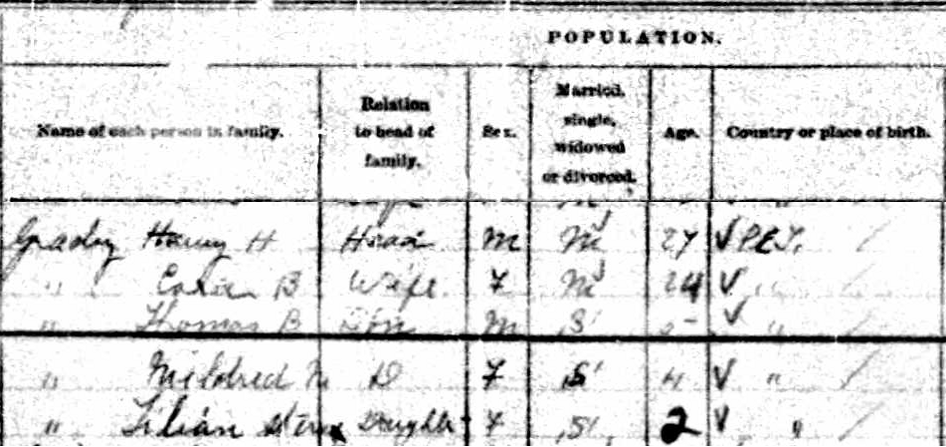 POPULATION.
Name of each person in family. Relation to head of family. Sex. Married, single, widowed or divorced. Age. Country or place of birth.
Grady H Head M M 27 P.E.I.
" B Wife F M 24 "
" Thomas B Son M S "
" Mildred D F S 4 "
" Lilian Daughter F S 2 "